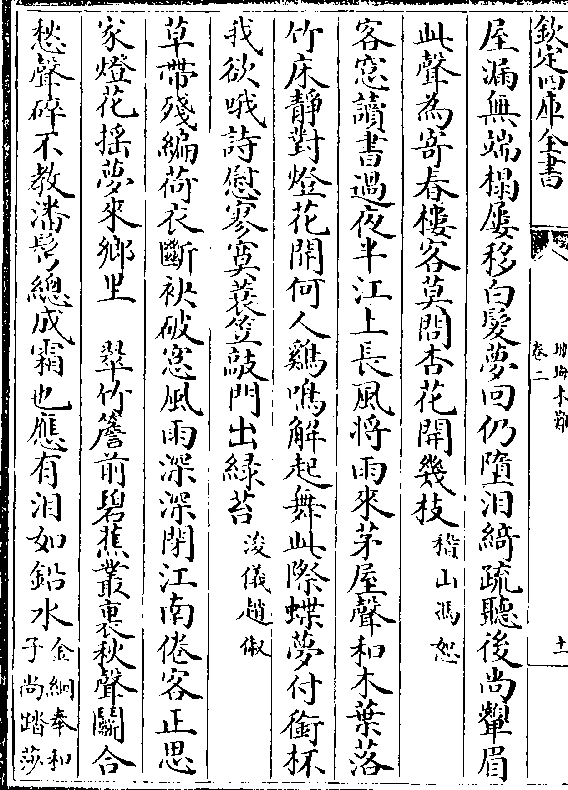 欽定四庫全書
珊瑚木難
卷二
十一
屋漏無端榻屢移白髮夢回仍墮泪綺疏聽後尚顰眉
此聲為寄春樓客莫問杏花開幾枝 稽山馮恕
客窓讀書過夜半江上長風将雨來茅屋聲和木葉落
竹床靜對燈花開何人雞鳴解起舞此際蝶夢付銜杯
我欲哦詩慰寥寞蓑笠敲門出緑苔 浚儀趙俶
草帶殘編荷衣斷袂破窓風雨深深閉江南倦客正思
家燈花摇夢來鄉里 翠竹簷前碧蕉叢裏秋聲闗合
愁聲碎不教潘鬂總成霜也應有泪如鉛水 金絅奉和
子尚踏莎